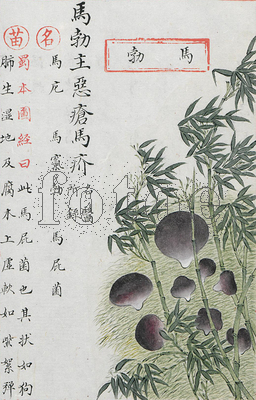 馬勃
馬勃主惡瘡馬疥
名醫所錄
名
馬庀 馬 馬屁菌
苗
蜀本圖經曰此馬屁菌也其狀如狗
肺生濕地及腐木上虛軟如紫絮彈
fotoe